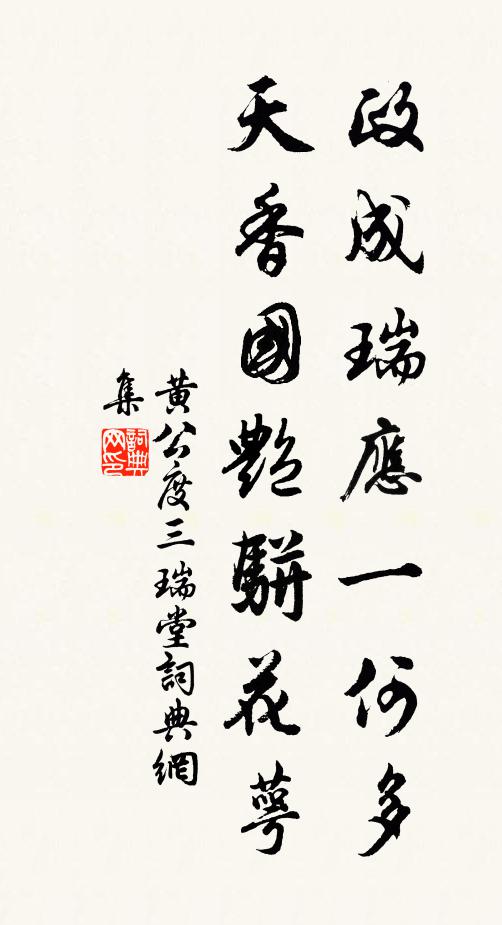 政成瑞應一何多
天香國艷駢花萼
黃公度三瑞堂詞典網
集
詞典
网印